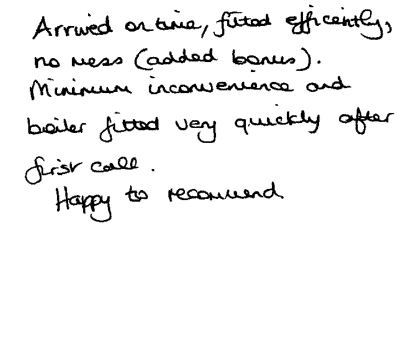 Arrived on time, fitted efficently,
no mess (added bonus).
Minimum inconvenience and
boiler fitted very quickly after
first call.
Happy to recommend